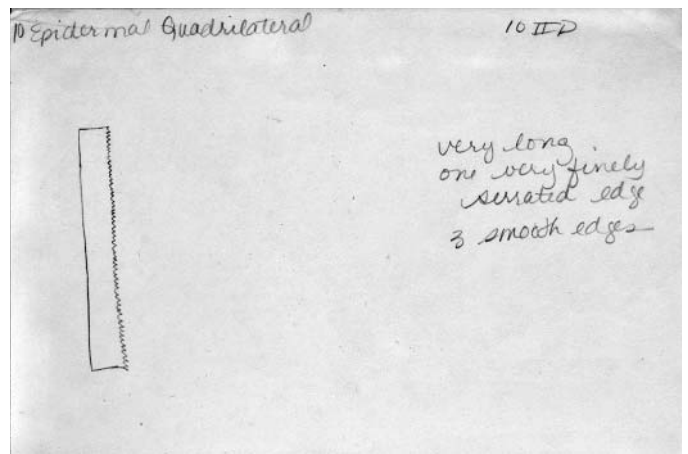 10 Epidermal Quadrilateral
10 II D
very long
one very finely
serrated edge
3 smooth edges